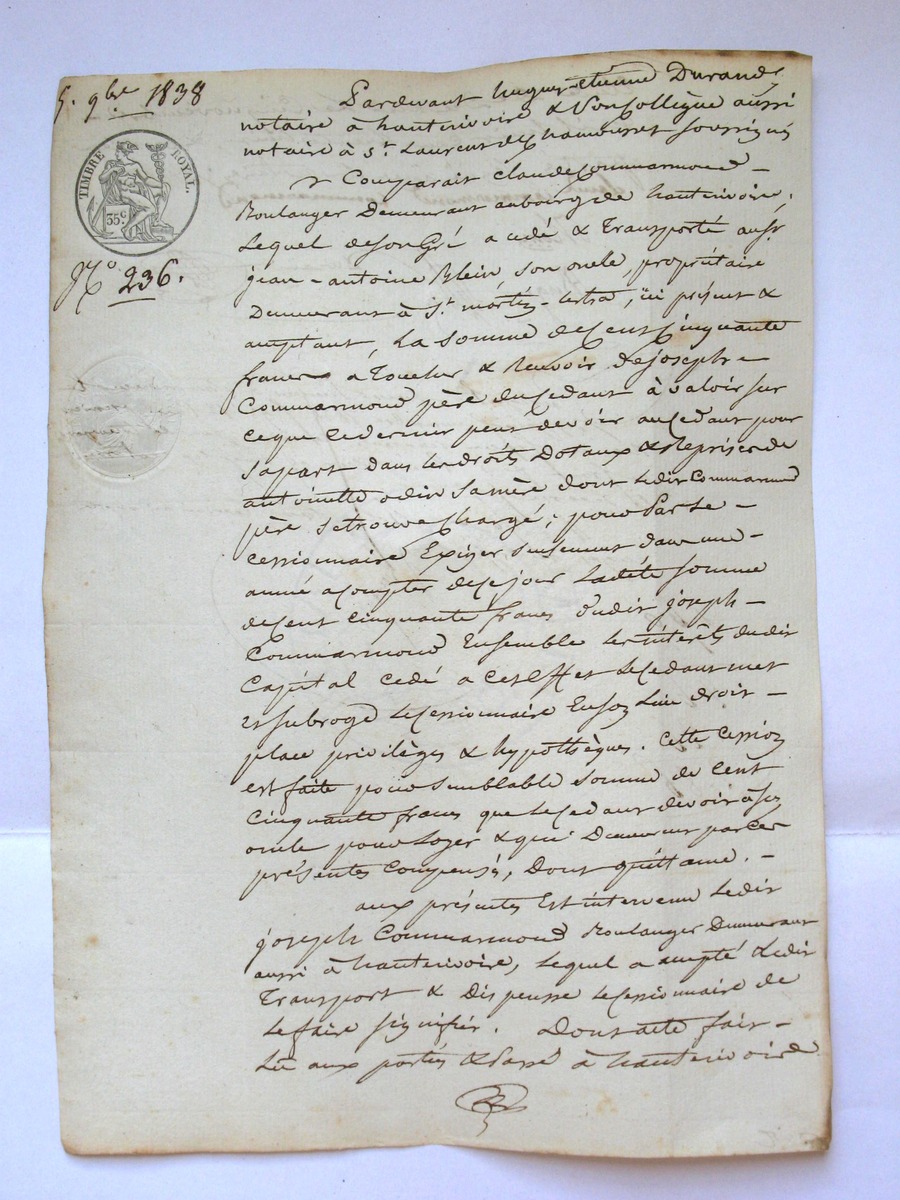 5. 9bre 1838
TIMBRE ROYAL.
35c.
N° 236.
Pardevant hugues-etienne Durand,
notaire à hauterivoire & son Collègue aussi
notaire à St. Laurent de Chamousset soussignés
Comparait claude Commarmond –
Boulanger Demeurant au bourg de hauterivoire,
Lequel de son Gré a cédé & Transporté au sr
jean-antoine Blein, son oncle, propriétaire
Demeurant à St. martin-lestra, ici présent &
acceptant, La Somme de Cent Cinquante
francs a Toucher & Recevoir de joseph –
Commarmond père du Cedant à valoir sur
ce que ce dernier peut devoir au Cedant pour
sa part dans les droits Dotaux & Reprises de
antoinette odin sa mère dont ledit Commarmond
père se trouve Chargé; pour Par le –
cessionnaire Exiger seulement dans une –
année a compter de ce jour Ladite somme
de cent cinquante francs dudit joseph –
Commarmond Ensemble les intérêts dudit
Capital cedé a cet Effet le Cedant met
et subroge le Cessionnaire En son Lieu droit –
place privilèges & hypothèques. Cette Cession
est faite pour semblable somme de cent
Cinquante francs que le Cedant devoit à son
oncle pour Loyer & qui Demeure par ces
présentes Compensé, Dont quittance. –
aux présentes Est intervenu Ledit
joseph Commarmond Boulanger Demeurant
aussi à hauterivoire, Lequel a accepté Ledit
Transport & Dispensse le Cessionnaire de
Le faire signifier. Dont acte fait –
Lu aux parties & Passé à hauterivoire